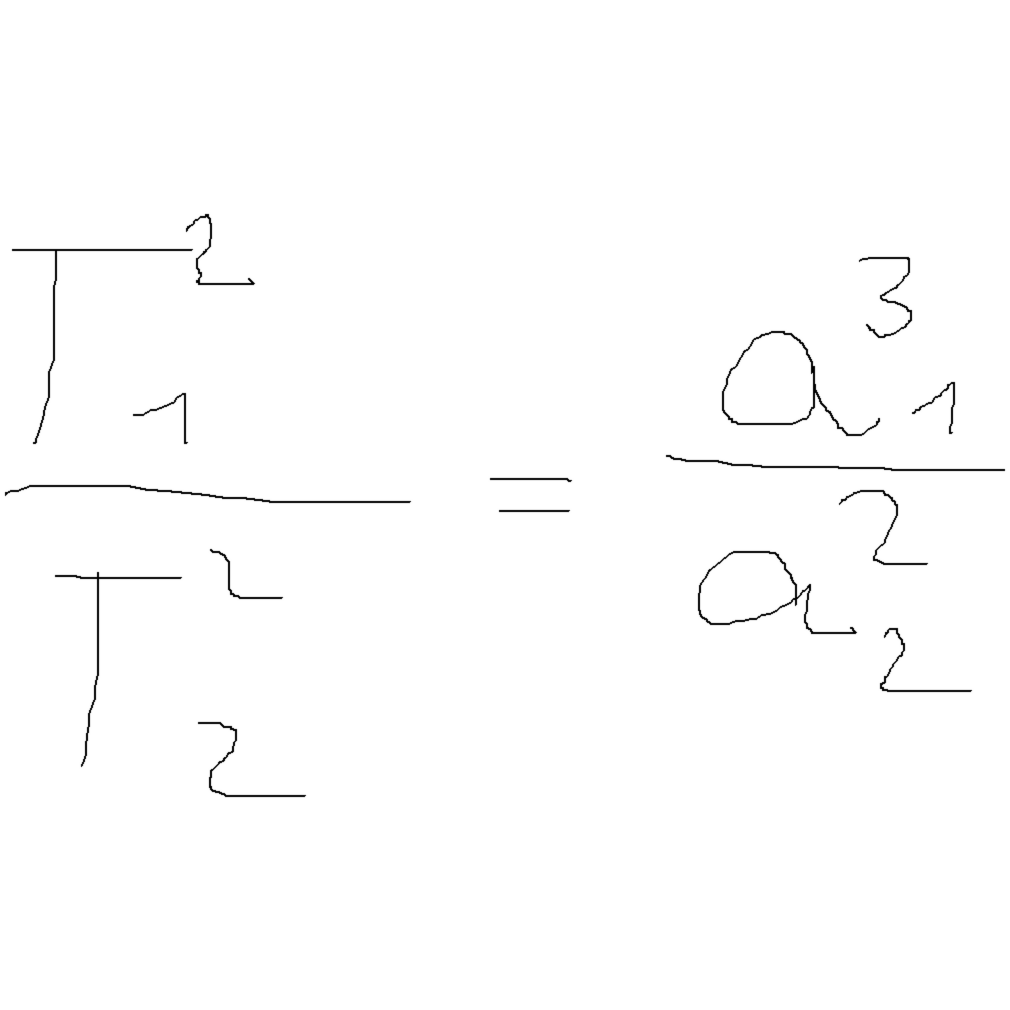 T₁² / T₂² = a₁³ / a₂²